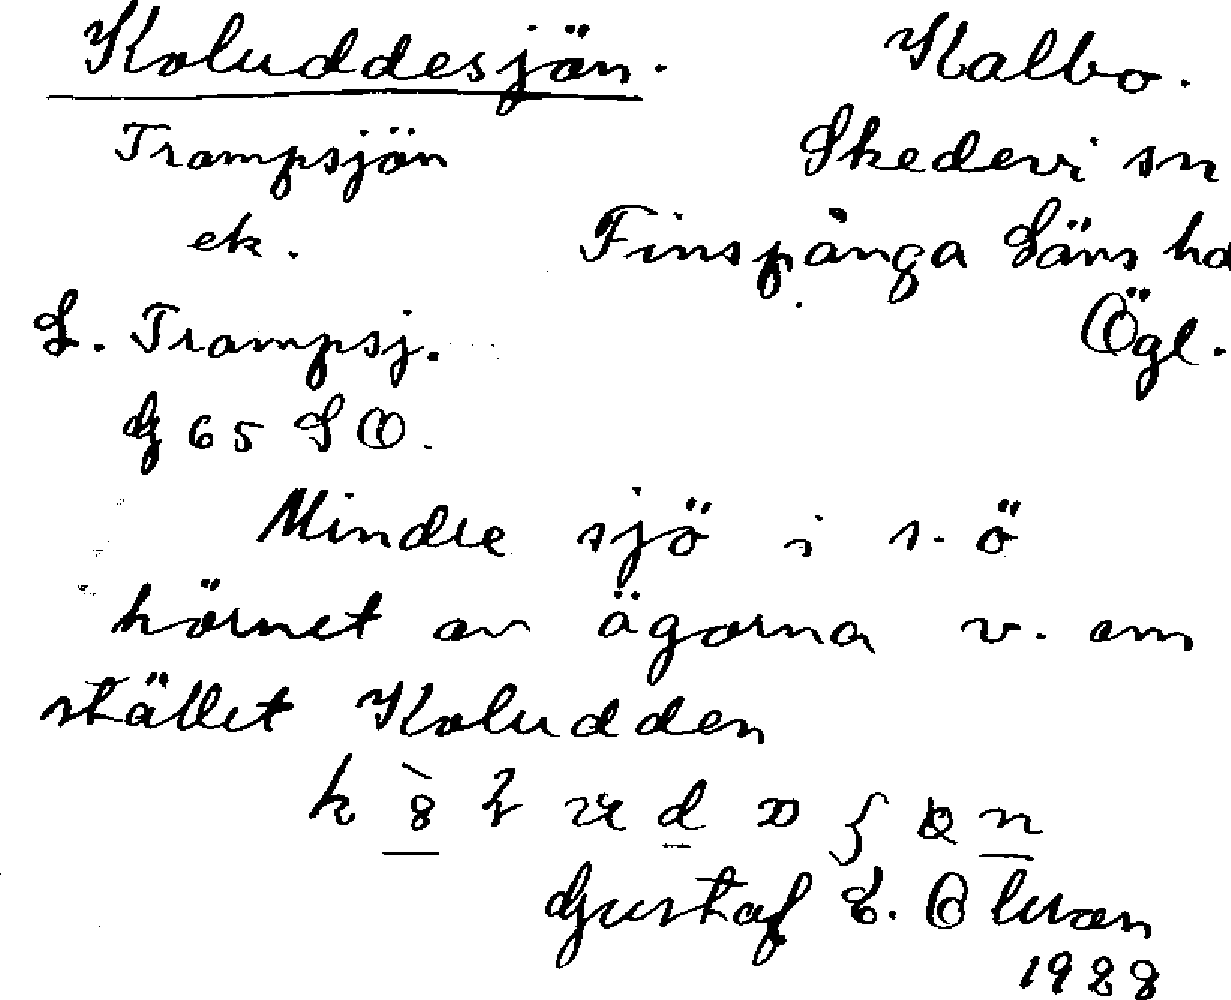 Koluddesjön. Kalbo.
Trampsjön Skedevi sn
ek. Finspånga Läns hd
L. Trampsj. Ögl.
G 65 SO.
Mindre sjö i s. ö
hörnet av ägorna v. om
stället Koludden
Gustaf E. Olsson
1928